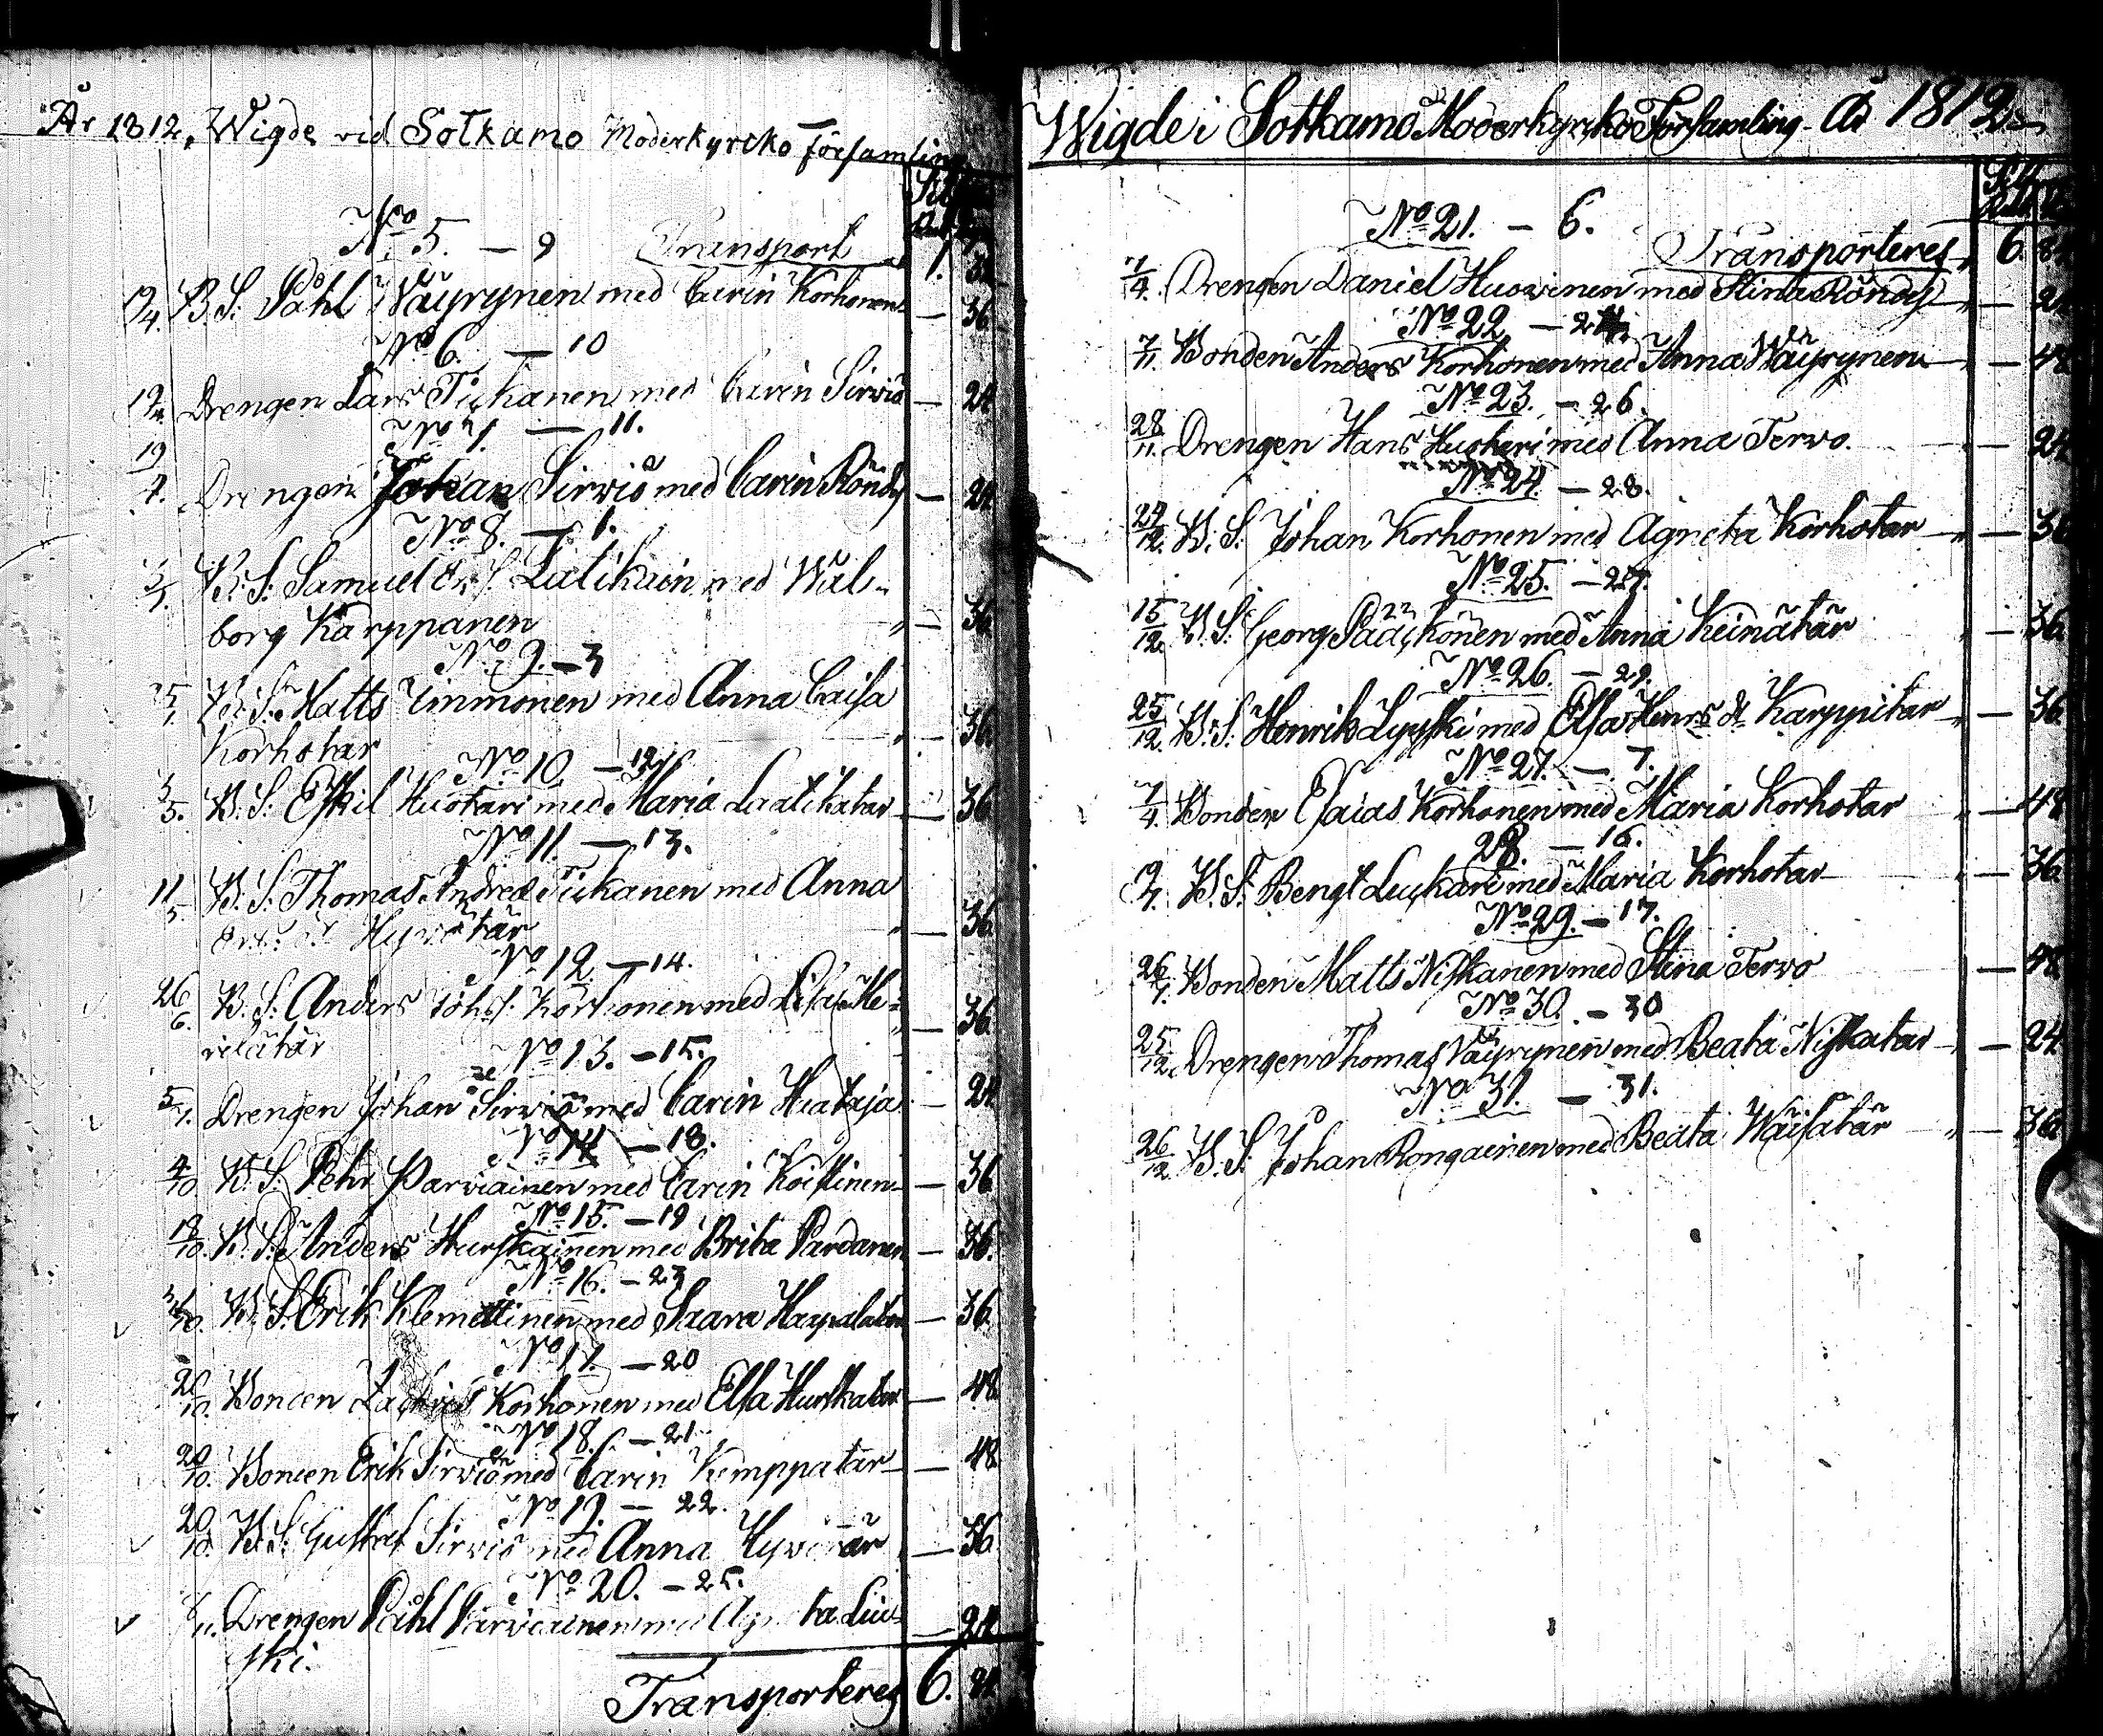 År 1812, Wigde vid Sotkamo Moderkyrcko församling
No 5. — 9 Transport 1.
19/4. B. S. Påhl Wäyrynen med Carin Korhonen — 36
No 6. — 10
19/4. Drengen Lars Tickanen med Carin Sirwiö — 24
No 7. — 11.
19/4. Drengen Johan Sirwiö med Carin Röndy — 24
No 8. — 1.
B. S. Samuel Laticain med Wal-
borg Karppanen — 36
No 9. — 3
B. S. Matts Timmonen med Anna Caisa
Korhotar — 36.
No 10. — 12
3/5. B. S. Eskil Huotari med Maria Laatikatar — 36
No 11. — 13.
11/5 B. S. Thomas Andreæ Tickanen med Anna
Hyvätär — 36.
No 12 — 14.
26/6. B. S. Anders Joh. S. Korhonen med Lisa He-
relätär — 36
No 13. — 15.
5/7. Drengen Johan Sirwiö med Carin Huataja — 24
No 14 — 18.
4/10 B. S. Pehr Parviainen med Carin Koistinen — 36
No 15. — 19
18/10. B. S. Anders Hurskainen med Brita Pardanen — 36.
No 16. — 23
B. S. Erik Klemettinen med Saara Haapalatar — 36.
No 17. — 20
20/10. Bonden Korhonen med Elsa Hurskatar — 48.
No 18. — 21
20/10. Bonden Erik Sirwiö med Carin Kemppatar — 48.
No 19. — 22.
20/10. B. S. Gustaf Sirwiö med Anna — 36
No 20. — 25.
Drengen Påhl Parviainen med Liu-
ski. — 24
Transporteres 6. 84
Wigde i Sotkamo Moderkyrcko Församling År 1812
No 21. — 6. Transporteres 6. 84
7/4. Drengen Daniel Huowinen med Stina Röndy — 24
No 22 — 24.
7/11. Bonden Anders Korhonen med Anna Wäyrynen — 48
No 23. — 26.
28/11. Drengen Hans Huotari med Anna Terwo. — 24
No 24. — 28.
B. S. Johan Korhonen med Agneta Korhotar — 36
No 25. — 27.
15/12. B. S. Georg Pääckönen med Anna Keinätär — 36
No 26. — 29.
25/12. B. S. Henrik Lyyski med Elsa Henrs dr Karppitar — 36
No 27. — 7.
7/4. Bonden Esaias Korhonen med Maria Korhotar — 48
28. — 16.
B. S. Bengt Luckari med Maria Korhotar — 36
No 29. — 17.
26/7. Bonden Matts Niskanen med Stina Terwo — 48
No 30. — 30
25/12. Drengen Thomas Wäyrynen med Beata Niskatar — 24
No 31. — 31.
26/12 B. S. Johan Rongainen med Beata Wäisätär — 36